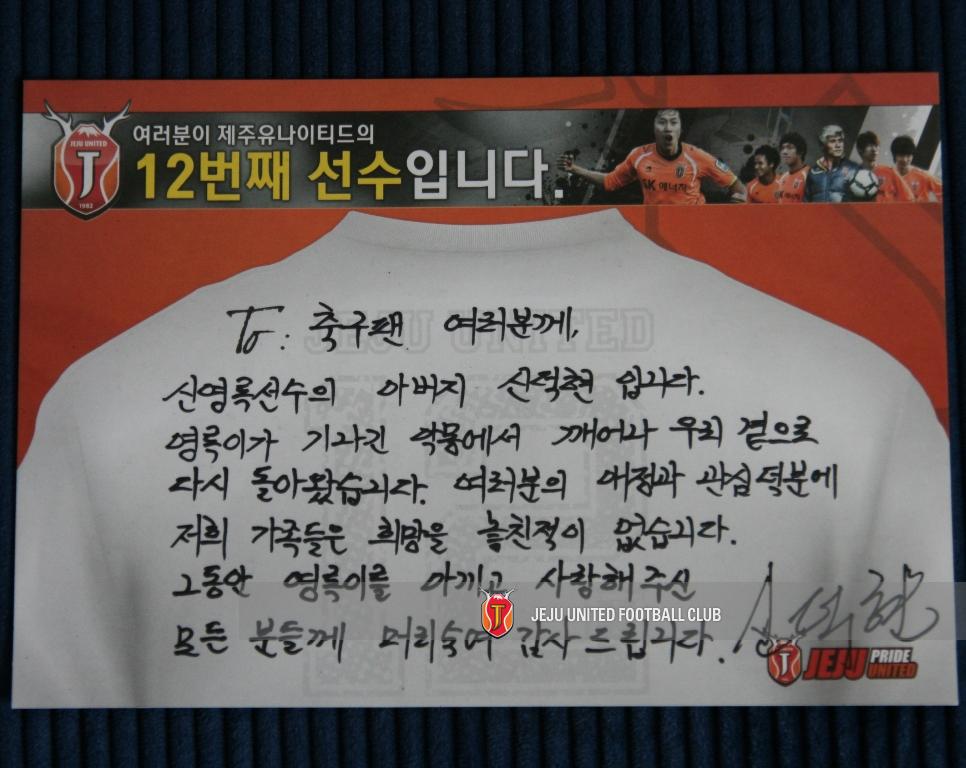 여러분이 제주유나이티드의
12번째 선수입니다.
JEJU UNITED
J
1982
SK 에너지
To. 축구팬 여러분께,
JEJU UNITED
신영록선수의 아버지 신덕현 입니다.
영록이가 기나긴 악몽에서 깨어나 우리 곁으로
다시 돌아왔습니다. 여러분의 애정과 관심 덕분에
저희 가족들은 희망을 놓친적이 없습니다.
그동안 영록이를 아끼고 사랑해 주신
JEJU UNITED FOOTBALL CLUB
모든 분들께 머리숙여 감사 드립니다.
신덕현
JEJU PRIDE
UNITED